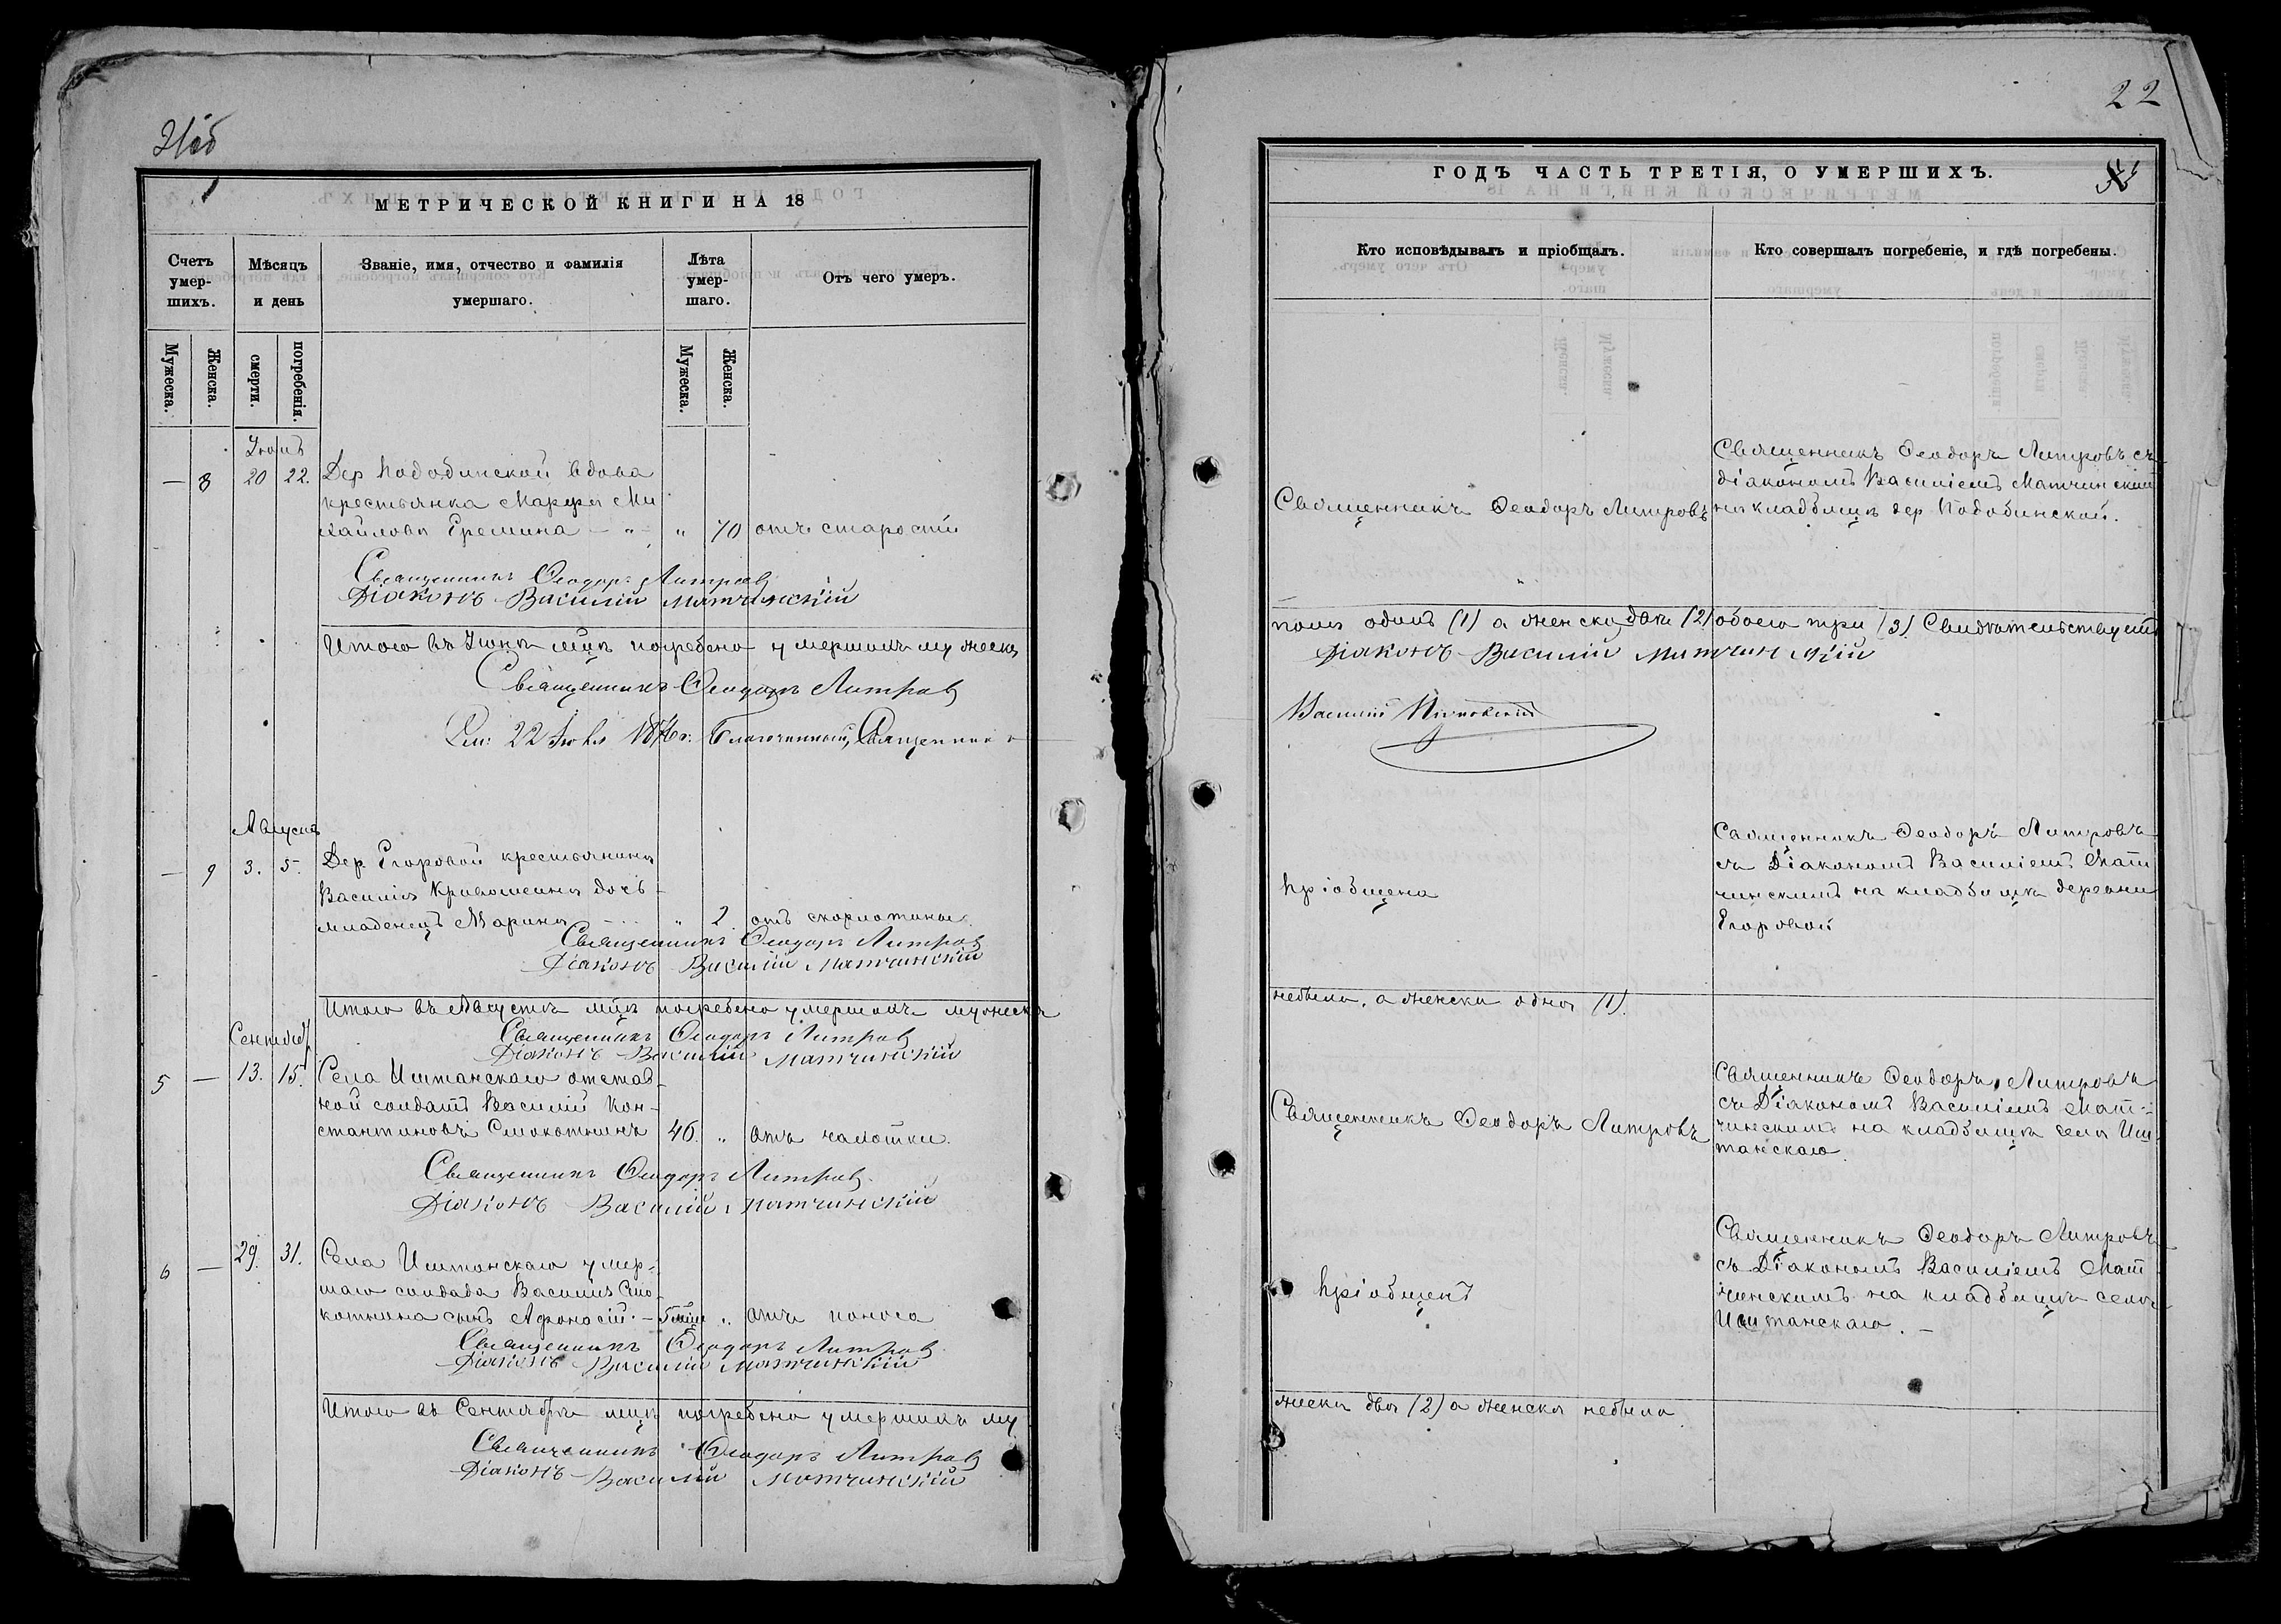 21об
МЕТРИЧЕСКОЙ КНИГИ НА 18
Счетъ умер-шихъ.
Мѣсяцъ и день
Званіе, имя, отчество и фамилія умершаго.
Лѣта умер-шаго.
Отъ чего умеръ.
Мужеска.
Женска.
смерти.
погребенія.
Мужеска.
Женска.
Іюнь
— 8 20 22. Дер Подобинской вдова
крестьянка Марфа Ми
хайлова Еремина — " — " 70 отъ старости
Священникъ Ѳеодоръ Литровъ
Діаконъ Василій Матчинскій
Итого въ Іюнѣ м̃цѣ погребено умершихъ мужеска
Священникъ Ѳеодоръ Литровъ
22 Благочинный, Священникъ
Августъ
— 9 3. 5. Дер Егоровой крестьянина
Василія Кривошеина дочь
младенецъ Марина — " 2 отъ скорлотины
Священникъ Ѳеодоръ Литровъ
Діаконъ Василій Матчинскій
Итого въ Августѣ м̃цѣ погребено умершихъ мужеска
Священникъ Ѳеодоръ Литровъ
Діаконъ Василій Матчинскій
Сентябр
5 — 13. 15. Села Иштанскаго отстав-
ной солдатъ Василій Кон-
стантиновъ Смокотнинъ 46. " отъ чахотки.
Священникъ Ѳеодоръ Литровъ
Діаконъ Василій Матчинскій
6 — 29. 31. Села Иштанскаго умер-
шаго солдада Василія Смо-
котнина сынъ Афонасій — " отъ поноса
Священникъ Ѳеодоръ Литровъ
Діаконъ Василій Матчинскій
Итого въ Сентябрѣ м̃цѣ погребено умершихъ му
Священникъ Ѳеодоръ Литровъ
Діаконъ Василій Матчинскій
22
ГОДЪ ЧАСТЬ ТРЕТІЯ, О УМЕРШИХЪ.
Кто исповѣдывалъ и пріобщалъ.
Кто совершалъ погребеніе, и гдѣ погребены.
Священникъ Ѳеодоръ Литровъ
Священникъ Ѳеодоръ Литровъ съ
діакономъ Василіемъ Матчинским
на кладбищѣ дер Подобинской.
пола одинъ (1) а женска двѣ (2) обоего три (3). Свидѣтельствуемъ
Діаконъ Василій Матчинскій
Василій
Пріобщена
Священникъ Ѳеодоръ Литровъ
съ Діакономъ Василіемъ Мат
чинскимъ на кладбищѣ деревни
Егоровой
небыло, а женска одна (1).
Священникъ Ѳеодоръ Литровъ
Священникъ Ѳеодоръ Литровъ
съ Діакономъ Василіемъ Мат-
чинскимъ на кладбищѣ села Иш
танскаго.
Пріобщенъ
Священникъ Ѳеодоръ Литровъ
съ Діакономъ Василіемъ Мат
чинскимъ на кладбищѣ села
Иштанскаго. —
жеска два (2) а женска небыло